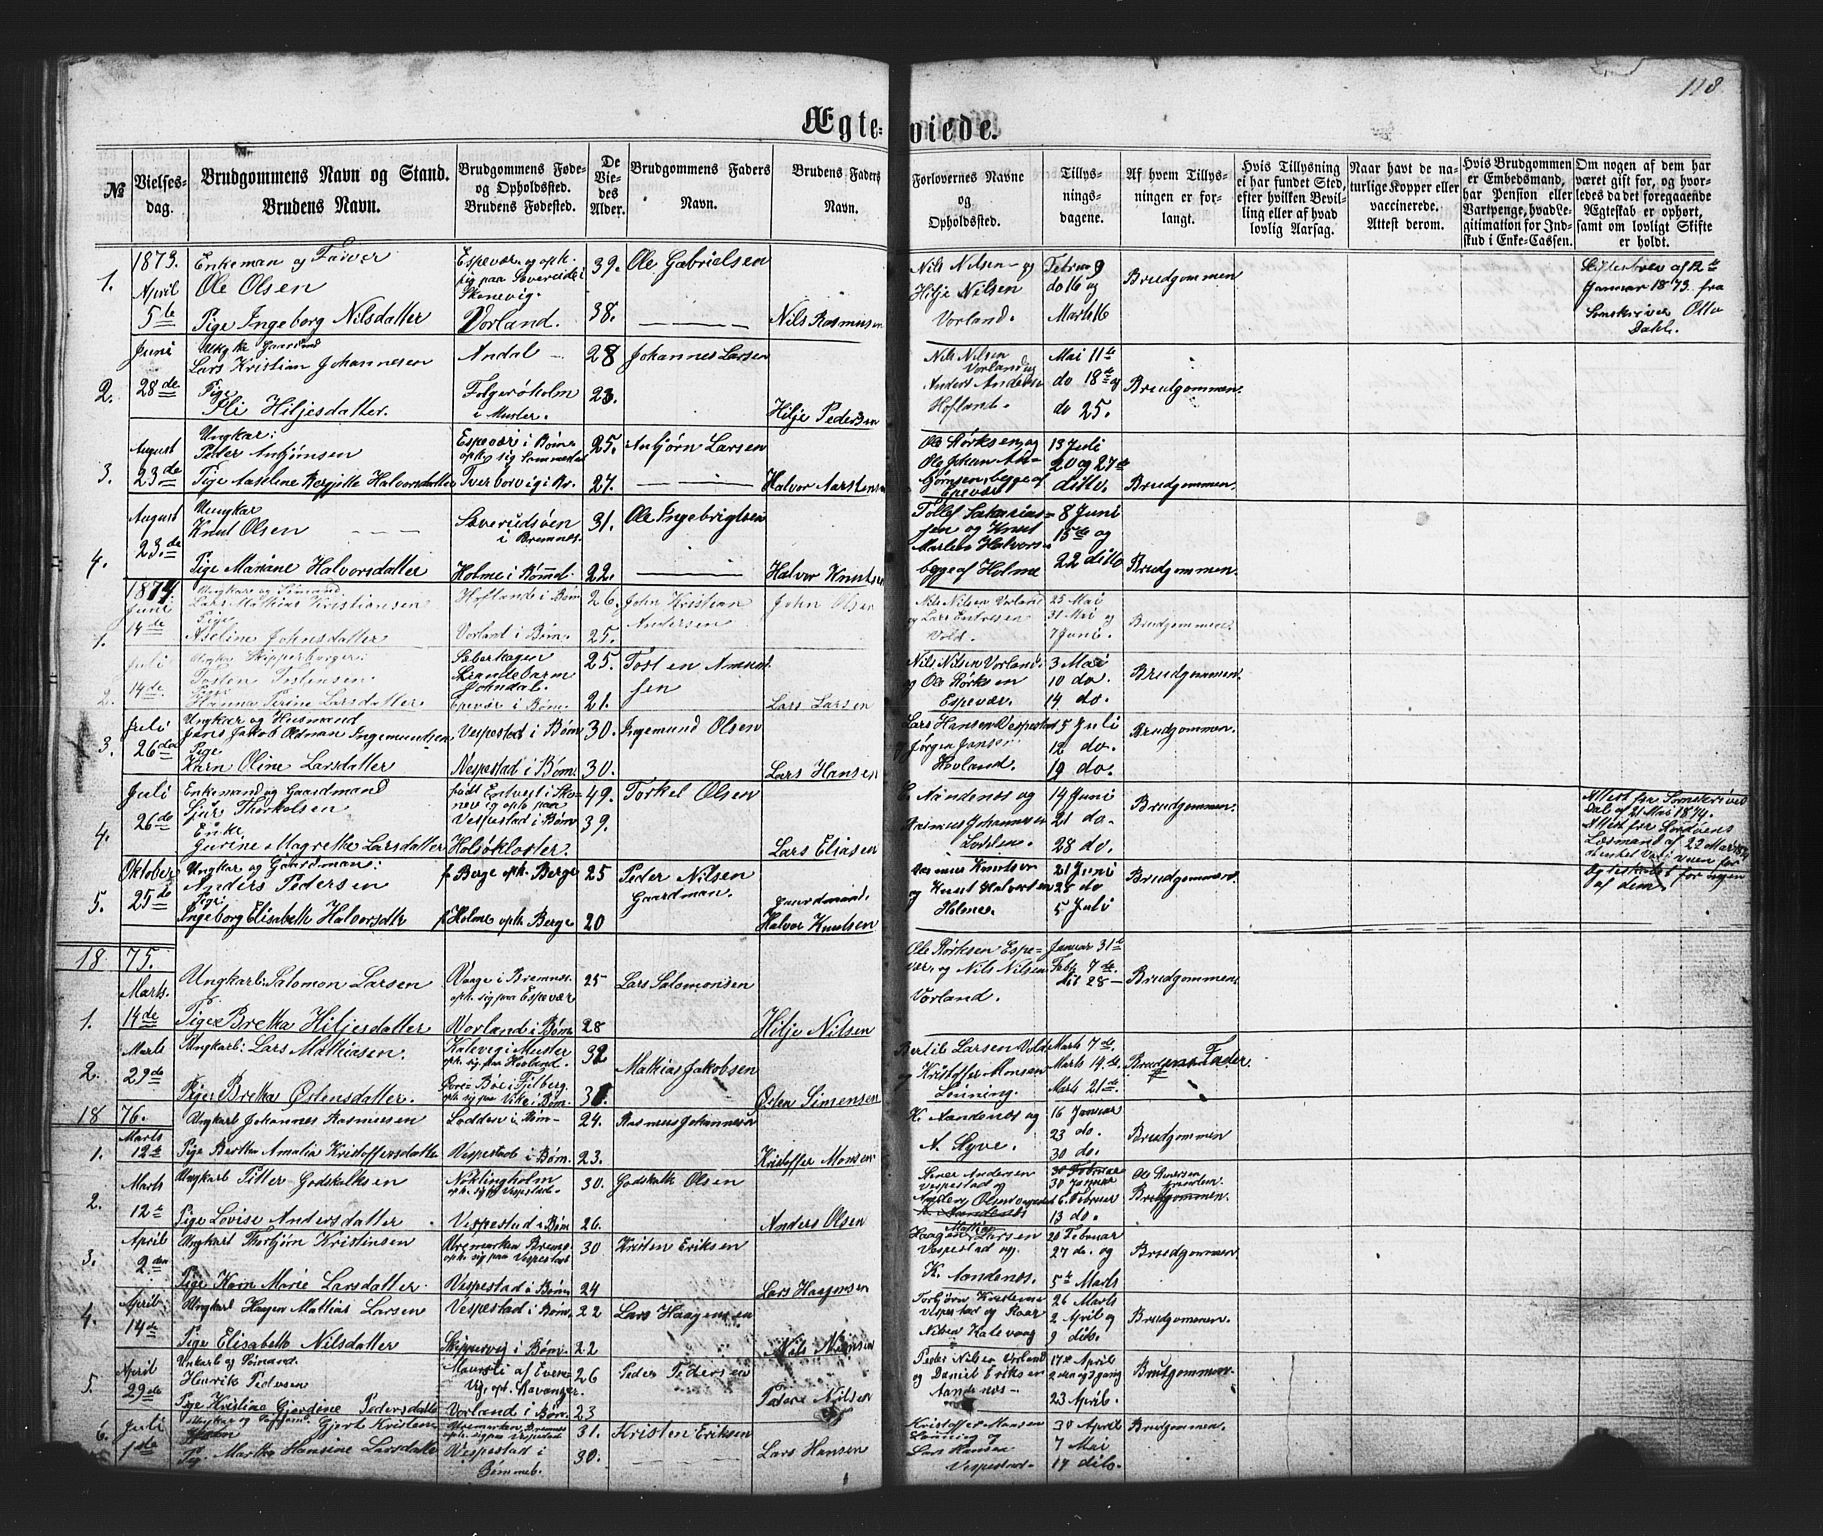 118
Ægte-
viede.
№
Vielses-
dag.
Brudgommens Navn og Stand.
Brudens Navn.
Brudgommens Føde-
og Opholdssted.
Brudens Fødested.
De
Vie-
des
Alder.
Brudgommens Faders
Navn.
Brudens Faders
Navn.
Forlovernes Navne
og
Opholdssted.
Tillys-
nings-
dagene.
Af hvem Tillys-
ningen er for-
langt.
Hvis Tillysning
ei har fundet Sted,
efter hvilken Bevil-
ling eller af hvad
lovlig Aarsag.
Naar havt de na-
turlige Kopper eller
vaccinerede.
Attest derom.
Hvis Brudgommen
er Embedsmand,
har Pension eller
Vartpenge, hvad Le-
gitimation for Ind-
skud i Enke-Cassen.
Om nogen af dem har
været gift for, og hvor-
ledes da det foregaaende
Ægteskab er ophørt,
samt om lovligt Skifte
er holdt.
1.
1873.
April
5te
Enkeman og
Ole Olsen
Pige Ingeborg Nilsdatter
Espevær og oph.
sig paa
Skonevig.
Vorland.
39.
38.
Ole Gabrielsen
Nils Rasmusen
Nils Nilsen og
Hilje Nilsen
Vorland.
Februar 9
do 16 og
Marts 16
Brudgommen
Skiftebrev af 12te
Januar 1873. fra
Sorenskriver Otto
Dahl.
2.
Juni
28de
Lars Kristian Johannesen
Pige
Hiljesdatter.
Andal
i Moster.
28
23.
Johannes Larsen
Hilje Pedersen
Nils Nilsen
Vorland og
Anders Anderse
Hofland.
Mai 11te
do 18te og
do 25.
Brudgommen.
3.
August
23de
Ungkar:
Peter Anbjørnsen
Pige Aaseline Bergitte Halvorsdatter
Espevær i Bømo
25.
27.
Anbjørn Larsen
Halvor Aarstensen
Ole Størksen og
Ole Johan An-
bjørnsen, begge af
Espevær
13 Juli
20 og 27de
ditto.
Brudgommen.
4.
August
23.de
Ungkar
Knut Olsen
Pige Mariane Halvorsdatter
Sæverudsøen
i Bremnes.
Holme i Bømmel.
31.
22.
Ole Ingebrigtsen
Halvor Knutsen
Tollef Sakarias-
sen og Knut
Martin Halvors.
begge af Holme
8 Juni
15te og
22 ditto
Brudgommen.
1.
1874.
Juni
14de
Ungkar og Sømand.
Lars Mathias Kristiansen
Pige
Aseline Johnsdatter
Hofland i Bøm
Vorland i Bøm.
26.
25.
John Kristian
Andersen
John Olsen
Nils Nilsen Vorland
og Lars
Vold.
25 Mai
31 Mai og
7 Juni.
Brudgommen.
2.
Juli
14de
Ungkar Skipperborger:
Tosten Tostensen
Pige
Hanna Serine Larsdatter.
Strandebarm
Jondal.
Espevær i Bøm.
25.
21.
Tosten Amund
sen
Lars Larsen
Nils Nilsen Vorland.
og Ole Størksen
Espevær.
3 Mai
10 do.
14 do.
Brudgommen.
3.
Juli
26de
Ungkar og Husmand
Jens Jakob Oldman Ingemundsen
Pige
Karn Oline Larsdatter
Vespestad i Bøm
Vespestad i Bøm.
30.
30.
Ingemund Olsen
Lars Hansen
Lars Hansen Vespestad
og Jørgen Jansen
Hovland.
5 Juli
12 do.
19 do.
Brudgommen.
4.
Juli
26de
Enkemand og Gaardmand
Sjur Thorkelsen
Enke
Gurine Magrethe Larsdatter
født Entvest i Sko-
nevig oph. paa
Vespestad i Bøm
Halsøkloster.
49.
39.
Torkel Olsen
Lars Eliasen
K. Nandenæs og
Rasmus Johannesen
Lodden.
14 Juni
21 do.
28 do.
Brudgommen.
Attest fra Sorenskriver
Dal af 21 Mai 1874.
Attest fra
Læsmand af 22 Mar 1874
for
Ægteskabet for nogen
af dem
5.
Oktober
25de
Ungkar og Gaardman:
Anders Pedersen
Pige
Ingeborg Elisabeth Halvorsdtr
f Berge oph. Berge
f Holme oph. Berge
25
20
Peder Nilsen
Gaardman.
Gaardmand.
Halvor Knutsen
Rasmus Knutsen
og Knut Halvorsen
Holme.
21 Juni
28 do
5 Juli
Brudgommen.
1875.
1.
Marts.
14de
Ungkarl: Salomon Larsen
Pige: Bretha Hiljesdatter
Vaage i Bremnes.
oph. sig paa Espevær
Vorland i Bøm
25
28
Lars Salomonsen
Hilje Nilsen
Ole Størksen Espe-
vær, og Nils Nilsen
Vorland.
Januar 31te
Feb. 7de
dit 28
Brudgommen
2.
Marts
29de
Ungkarl: Lars Mathiasen.
Pige: Bretha Østensdatter.
Katevig i Moster
oph. sig paa Hovland.
Bøe i Fjelberg
oph. sig paa Vike i Bøm.
32
31.
Mathias Jakobsen
Østen Simensen
Bertil Larsen Vold
og Kristoffer Monsen
Lønning.
Marts 7de.
Marts 14de
Marts 21de
Fader
1876.
1.
Marts
12te
Ungkarl Johannes Rasmusen
Pige Bertha Amalia Kristoffersdatter
Lodden i Bøm
Vespestad i Bøm.
24.
23.
Rasmus Johannesen
Kristoffer Monsen
K. Nandenæs og
A. Hyve.
16 Januar
23 do.
30 do.
Brudgommen
2.
Marts
12te
Ungkarl Pitter Godskalksen
Pige Lovise Andersdatter
Nøklingholm
oph. sig Vespestad.
Vespestad i Bøm
30.
26.
Godskalk Olsen
Anders Olsen
Andersen
Vespestad og
Anders Olsen Vespestad
K. Nandenæs
30 Februar
30 Januar
6. Februar
13 do.
Ole
Brudgommen.
3.
April
2den
Ungkarl Thorbjørn Kristinsen
Pige Karn Marie Larsdatter.
Utremarken Bremnes
oph. sig paa Vespestad
Vespestad i Bøm
30
24
Kristen Eriksen
Lars Haagensen
Haagen Mathias Larsen
Vespestad og
K. Nandenæs.
20 Februar
27 do. og
5te Marts
Brudgommen.
4.
April.
14de
Ungkarl Haagen Mathias Larsen
Pige Elisabeth Nilsdatter
Vespestad i Bøm.
Skippervig i Bøm.
22
22
Lars Haagensen
Nils Nilsen
Torbjørn Kristensen
Vespestad og Roar
Nilsen Katevaag
26 Marts
2 April og
9 dito.
Brudgommen.
5.
April
29de
Unkarl og Sømand.
Henrik Pedersen
Pige Kristine Gjerdine Pedersdatter
oph. Stavanger.
Vorland i Bøm.
26
23
Peder Pedersen
Peder Nilsen
Peder Nilsen Vorland
og Daniel Eriksen
Nandenæs
17de April
2den og 3 gang
23 April.
Brudgommen.
6.
Juli
1ste
Gjert Kristensen
Pig. Martha Hansine Larsdatter
Utremarken Bremnes
oph. sig paa Vespestad
Vespestad i
Bømmel.
31.
30.
Kristen Eriksen
Lars Hansen
Kristoffer Monsen
Lønning og
Lars Hansen
Vespestad.
30 April
7 Mai
14 dito.
Brudgommen.